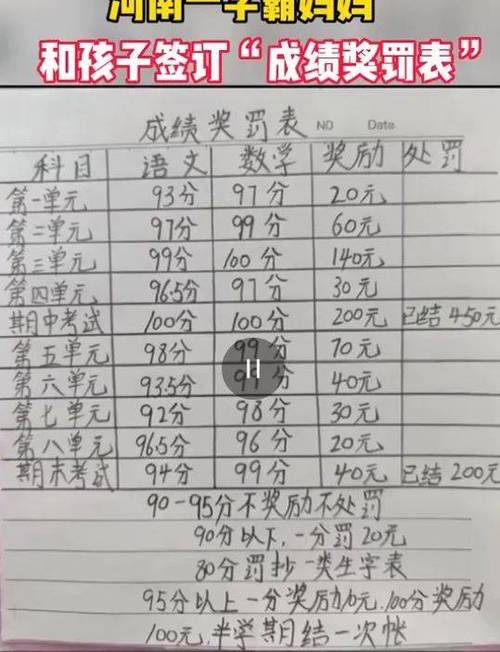 河南一学霸妈妈
和孩子签订“成绩奖罚表”
成绩奖罚表 NO Date
科目 语文 数学 奖励 处罚
第一单元 93分 97分 20元
第二单元 97分 99分 60元
第三单元 99分 100分 140元
第四单元 96.5分 97分 30元
期中考试 100分 100分 200元 已结450元
第五单元 98分 99分 70元
第六单元 93.5分 97分 40元
第七单元 92分 98分 30元
第八单元 96.5分 96分 20元
期末考试 94分 99分 40元 已结200元
90-95分不奖励不处罚
90分以下,一分罚20元
80分罚抄一类生字表
95分以上一分奖励10元.100分奖励
100元,半学期结一次帐